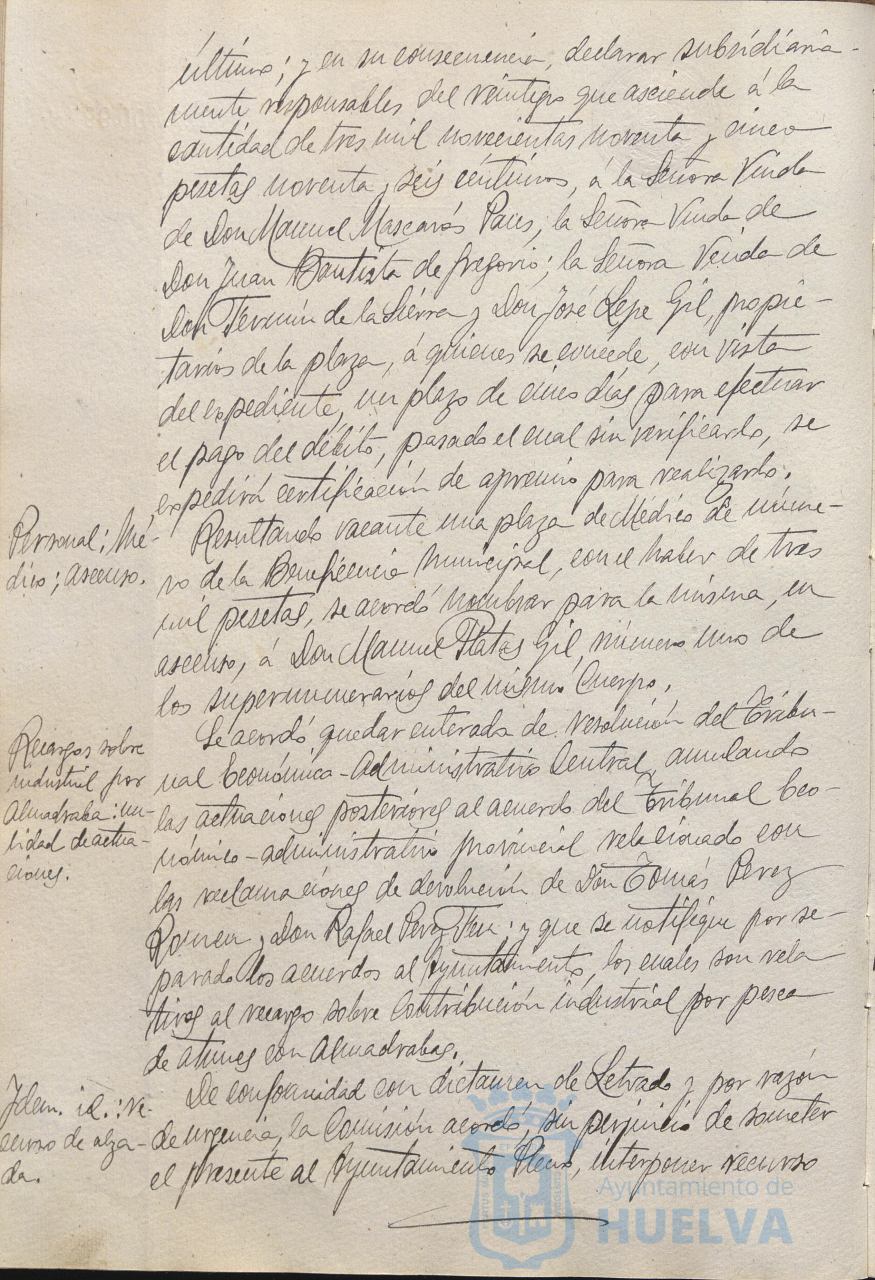 último; y en su consecuencia, declarar subsidiaria-
mente responsables del reintegro que asciende á la
cantidad de tres mil novecientas noventa y cinco
pesetas noventa y seis céntimos, á la Señora Viuda
de Don Manuel Mascarós Paus, la Señora Viuda de
Don Juan Bautista de Gregorio; la Señora Viuda de
Don Fermín de la Sierra y Don José Lepe Gil, propie-
tarios de la plaza, á quienes se concede, con vista
del expediente, un plazo de cinco días para efectuar
el pago del débito, pasado el cual sin verificarlo, se
expedirá certificación de apremio para realizarlo.
Personal: Mé-
dico; ascenso.
Resultando vacante una plaza de Médico de núme-
ro de la Beneficencia Municipal, con el haber de tres
mil pesetas, se acordó nombrar para la misma, en
ascenso, á Don Manuel Platas Gil, número uno de
los supernumerarios del mismo Cuerpo.
Recargos sobre
industrial por
Almadraba: nu-
lidad de actua-
ciones.
Se acordó quedar enterada de resolución del Tribu-
nal Económico-Administrativo Central, anulando
las actuaciones posteriores al acuerdo del Tribunal Eco-
nómico-administrativo provincial relacionado con
las reclamaciones de devolución de Don Tomás Perez
Romeu y Don Rafael Perez Feu; y que se notifique por se-
parado los acuerdos al Ayuntamiento, los cuales son rela-
tivos al recargo sobre Contribución industrial por pesca
de atunes con Almadrabas.
Idem. id.: re-
curso de alza-
da.
De conformidad con dictamen de Letrado y por razón
de urgencia, la Comisión acordó, sin perjuicio de someter
el presente al Ayuntamiento Pleno, interponer recurso
Ayuntamiento de
HUELVA